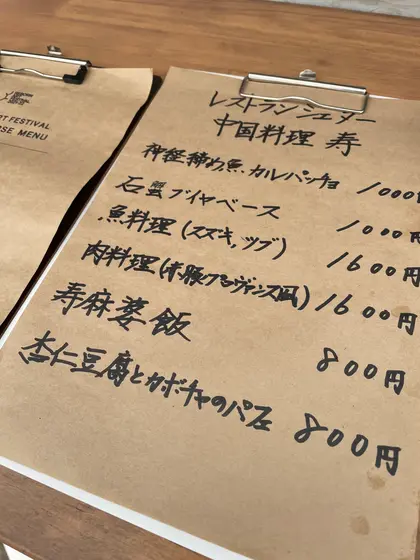 FESTIVAL
SE MENU
レストランシェダー
中国料理 寿
神経締め魚.カルパッチョ 1000円
石蟹ブイヤベース 1000円
魚料理(スズキ,ツブ) 1600円
肉料理(赤豚プロヴァンス風) 1600円
寿麻婆飯 800円
杏仁豆腐とカボチャのパフェ 800円